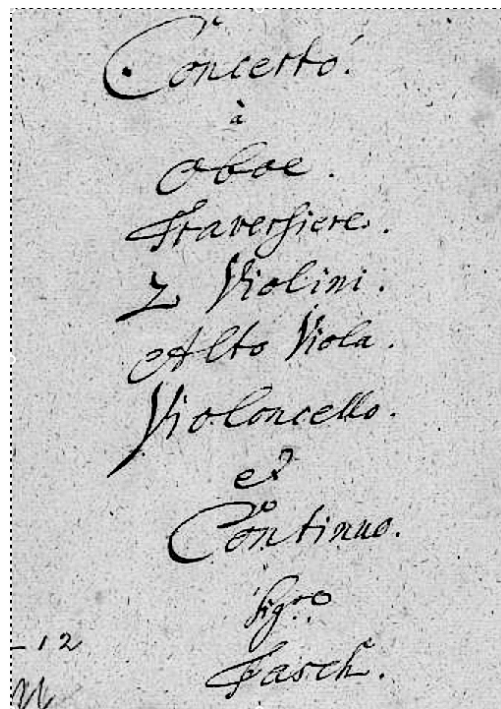 Concerto.
à
Oboe.
Traversiere.
2 Violini.
Alto Viola.
Violoncello.
et
Continuo.
Sigro
-12
Fasch.